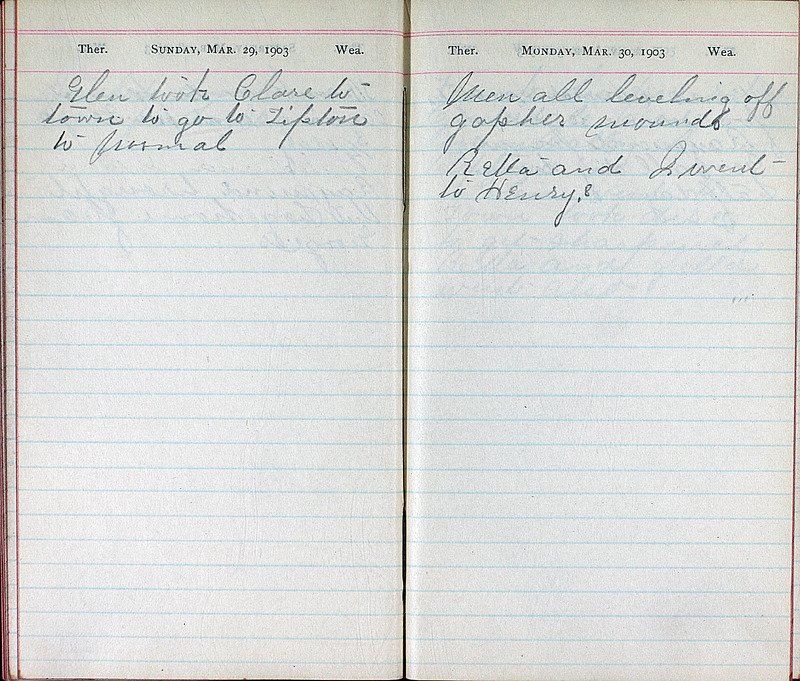 Ther. SUNDAY, MAR. 29, 1903 Wea.
Glen took Clare to
town to go to Tipton
to normal
Ther. MONDAY, MAR. 30, 1903 Wea.
Men all leveling off
gopher mounds
Retta and I went
to Henry,s